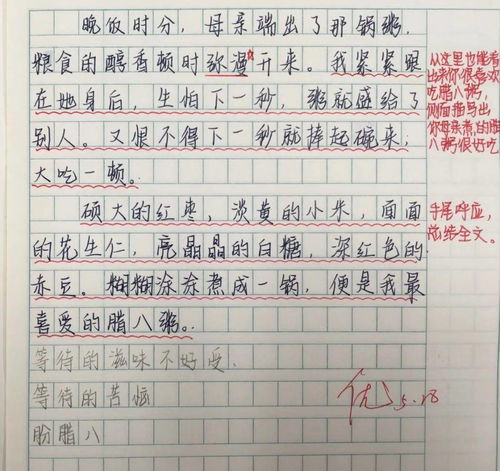 晚饭时分，母亲端出了那锅粥，
粮食的醇香顿时弥漫开来。我紧紧跟
在她身后，生怕下一秒，粥就盛给了
别人。又恨不得下一秒就捧起碗来，
大吃一顿。
硕大的红枣，淡黄的小米，面面
的花生仁，亮晶晶的白糖，深红色的
赤豆。糊糊涂涂煮成一锅，便是我最
喜爱的腊八粥。
等待的滋味不好受.
等待的苦恼
盼腊八
从这里也能看
出来你很喜欢
吃腊八粥，
侧面描写出
你母亲煮的腊
八粥很好吃
首尾呼应，
总结全文。
优
5.28